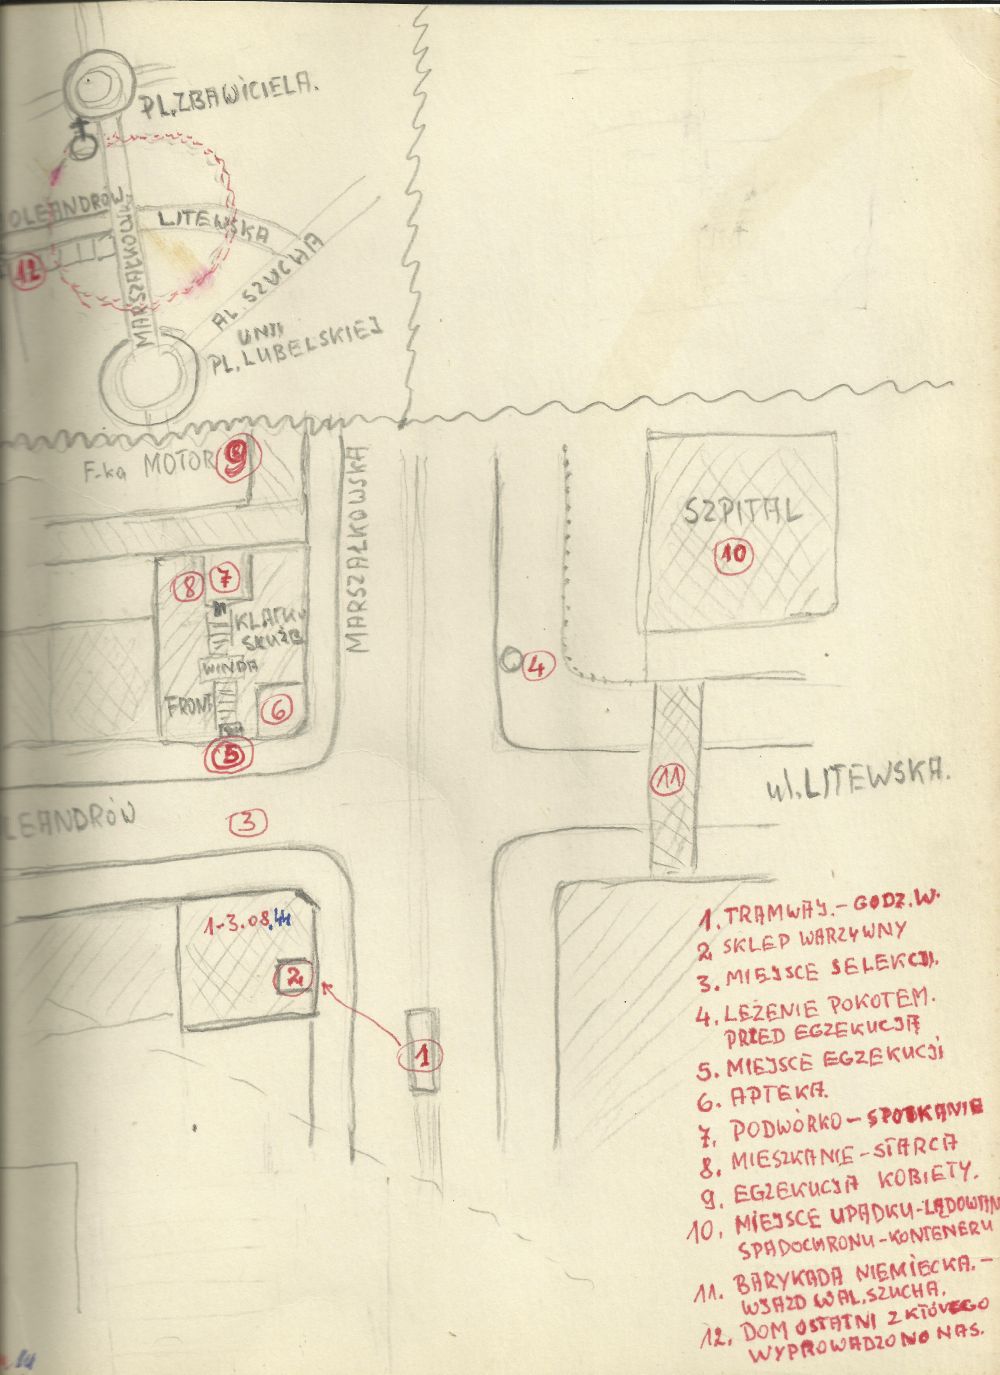 PL. ZBAWICIELA.
OLEANDRÓW
LITEWSKA
MARSZAŁKOWSKA
AL. SZUCHA
12
UNII
PL. LUBELSKIEJ
F-ka MOTOR
9
MARSZAŁKOWSKA
SZPITAL
10
8
7
KLATKA
SŁUŻB
WINDA
4
FRONT
6
5
11
ul. LITEWSKA.
LEANDRÓW
3
1-3.08.44
2
1
1. TRAMWAJ. - GODZ. W.
2 SKLEP WARZYWNY
3. MIEJSCE SELEKCJI.
4. LEŻENIE POKOTEM.
PRZED EGZEKUCJĄ
5. MIEJSCE EGZEKUCJI
6. APTEKA.
7. PODWÓRKO - SPOTKANIE
8. MIESZKANIE - STARCA
9. EGZEKUCJA KOBIETY.
10. MIEJSCE UPADKU - LĄDOWAN
SPADOCHRONU - KONTENERU
11. BARYKADA NIEMIECKA. -
WJAZD W AL. SZUCHA.
12. DOM OSTATNI Z KTÓREGO
WYPROWADZONO NAS.